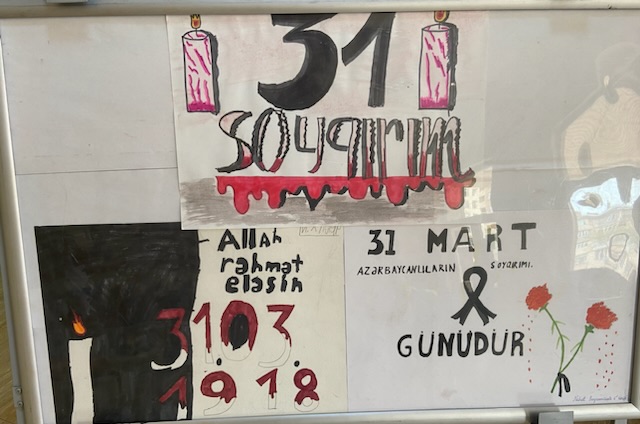 31
soyqırım
Allah
rəhmət
eləsin
31.03.
1918
31 MART
AZƏRBAYCANLILARIN SOYQIRIMI
GÜNÜDÜR